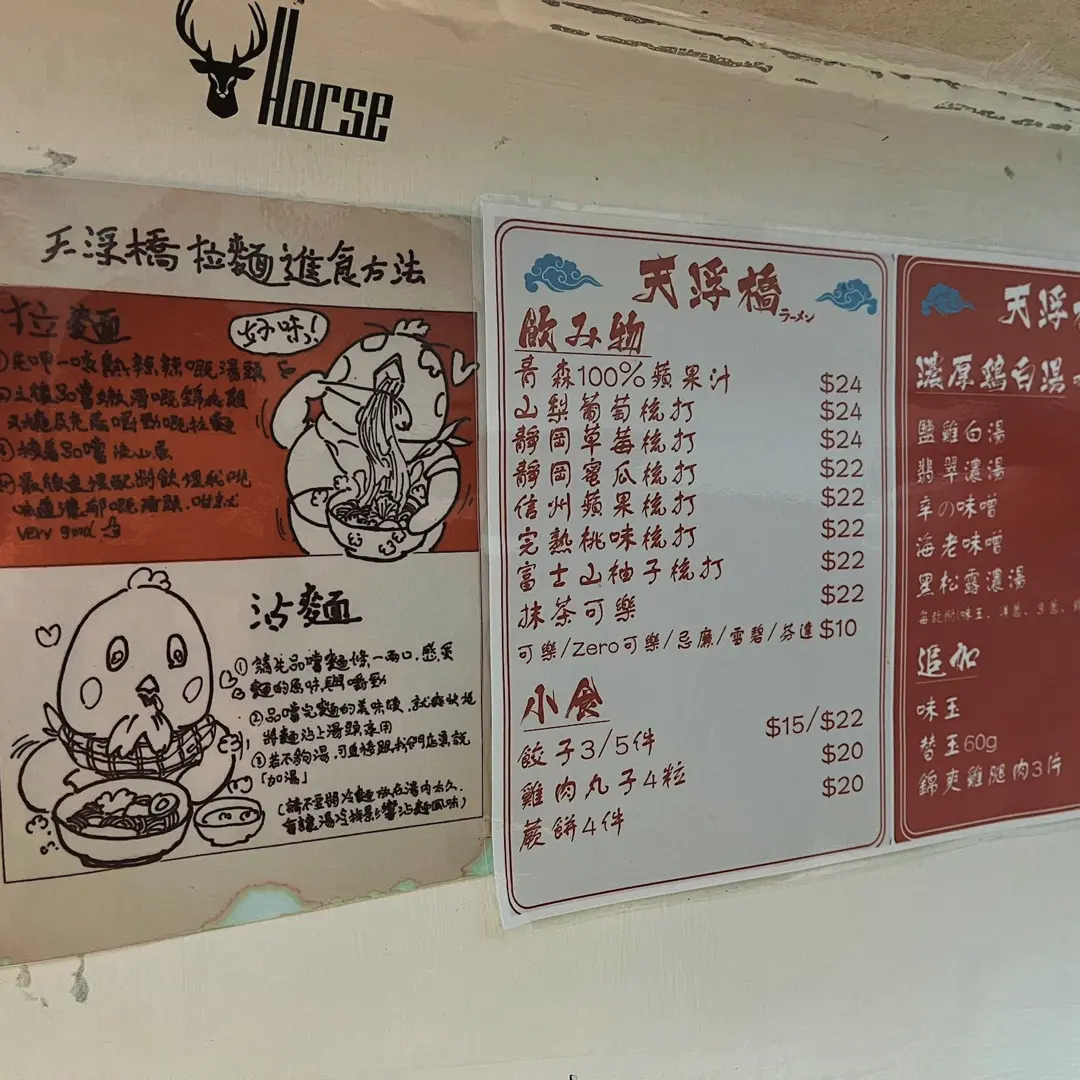 Horse
天浮橋 拉麵進食方法
拉麵
好味！
①先呷一啖熱辣辣嘅湯頭
very good
沾麵
①請先品嚐麵條一兩口，感受
麵的原味與嚼勁
②品嚐完麵的美味後，就爽快地
將麵沾上湯頭享用
③若不夠湯，可直接跟我們店員說
「加湯」
(請不要將冷麵放在湯內太久，
天浮橋
ラーメン
飲み物
青森100%蘋果汁 $24
山梨葡萄梳打 $24
靜岡草莓梳打 $24
靜岡蜜瓜梳打 $22
信州蘋果梳打 $22
完熟桃味梳打 $22
富士山柚子梳打 $22
抹茶可樂 $22
可樂/Zero可樂/忌廉/雪碧/芬達 $10
小食
餃子3/5件 $15/$22
雞肉丸子4粒 $20
蕨餅4件 $20
天浮
濃厚鶏白湯
鹽雞白湯
翡翠濃湯
辛の味噌
海老味噌
黑松露濃湯
追加
味玉
替玉60g
錦爽雞腿肉3片